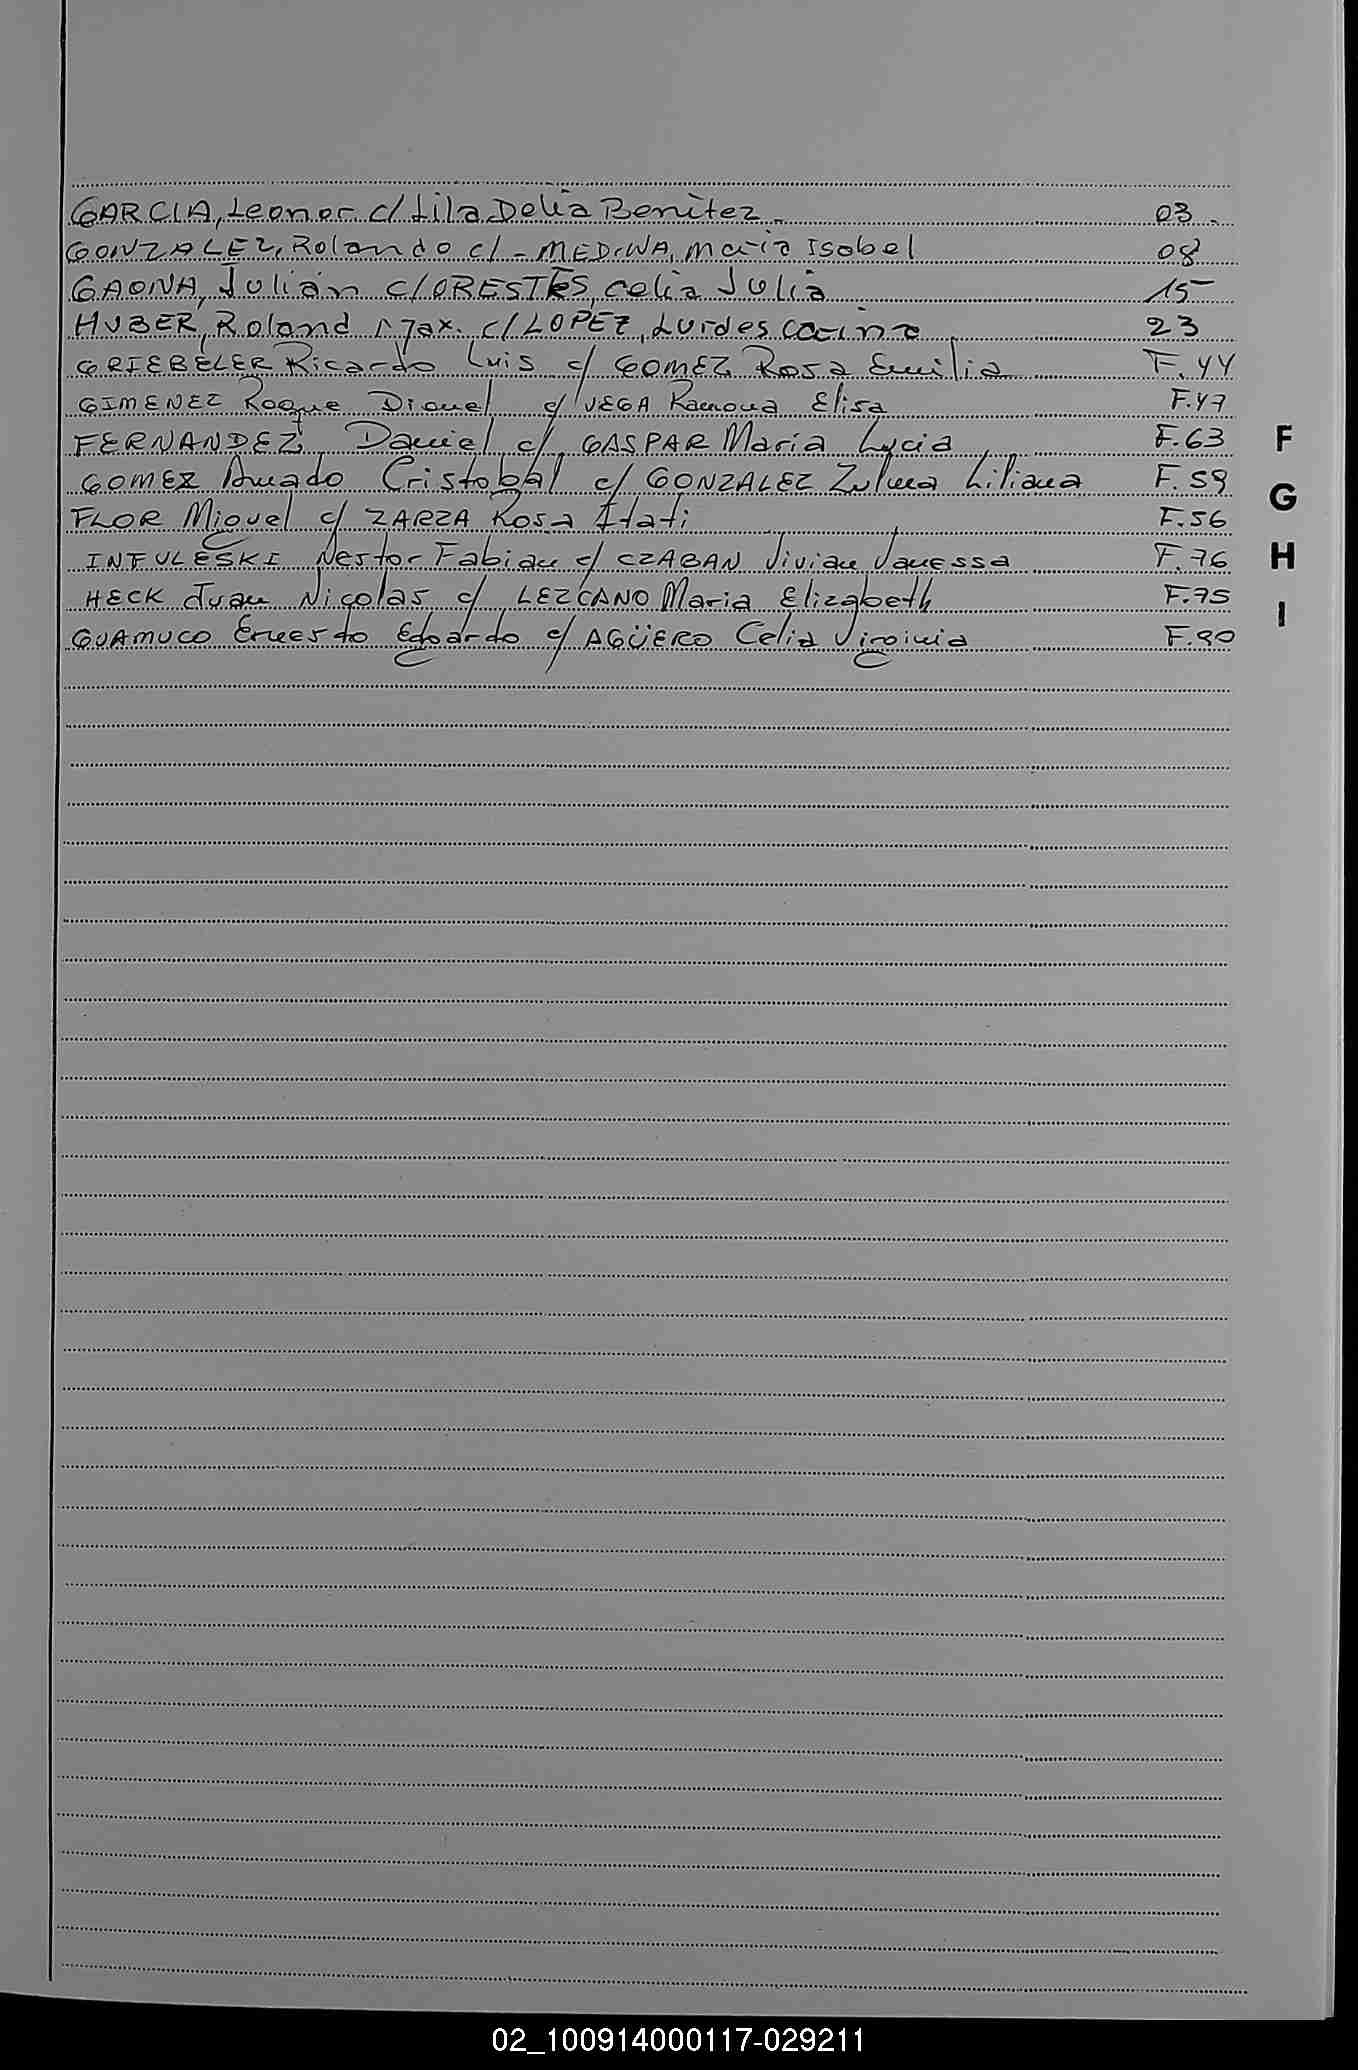 GARCIA, Leonor c/ Lila Delia Benitez - 03 -
GONZALEZ, Rolando c/ - MEDINA, Maria Isabel 08
GAONA, Julian c/ ORESTES, Celia Julia 15
HUBER, Roland Max. c/ LOPEZ, Lurdes Carina 23
GRIEBELER Ricardo Luis c/ GOMEZ Rosa Emilia F.44
GIMENEZ Roque Dionel c/ VEGA Ramona Elisa F.47
FERNANDEZ, Daniel c/ GASPAR Maria Lucia F.63
GOMEZ Amado Cristobal c/ GONZALEZ Zulma Liliana F.59
FLOR Miguel c/ ZARZA Rosa Itati F.56
INFULESKI Nestor Fabian c/ CZABAN Vivian Vanessa F.76
HECK Juan Nicolas c/ LEZCANO Maria Elizabeth F.75
GUAMUCO Ernesto Edgardo c/ AGÜERO Celia Virginia F.90
F
G
H
I
02_100914000117-029211